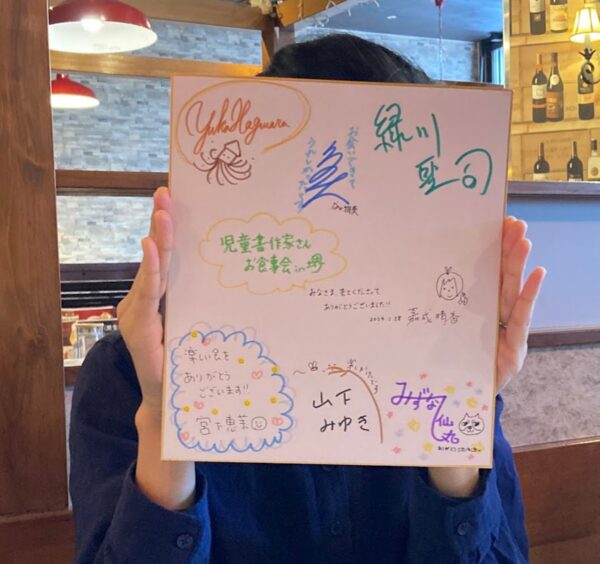 Yuka Hagiwara
お会いできて
うれしかったです
緑川
聖司
児童書作家さん
お食事会 in 堺
みなさま、来てくださって
ありがとうございました!!
嘉成晴香
楽しい会を
ありがとう
ございます!!
宮下恵茉
楽しかったです
山下
みゆき
みずな
仙丸